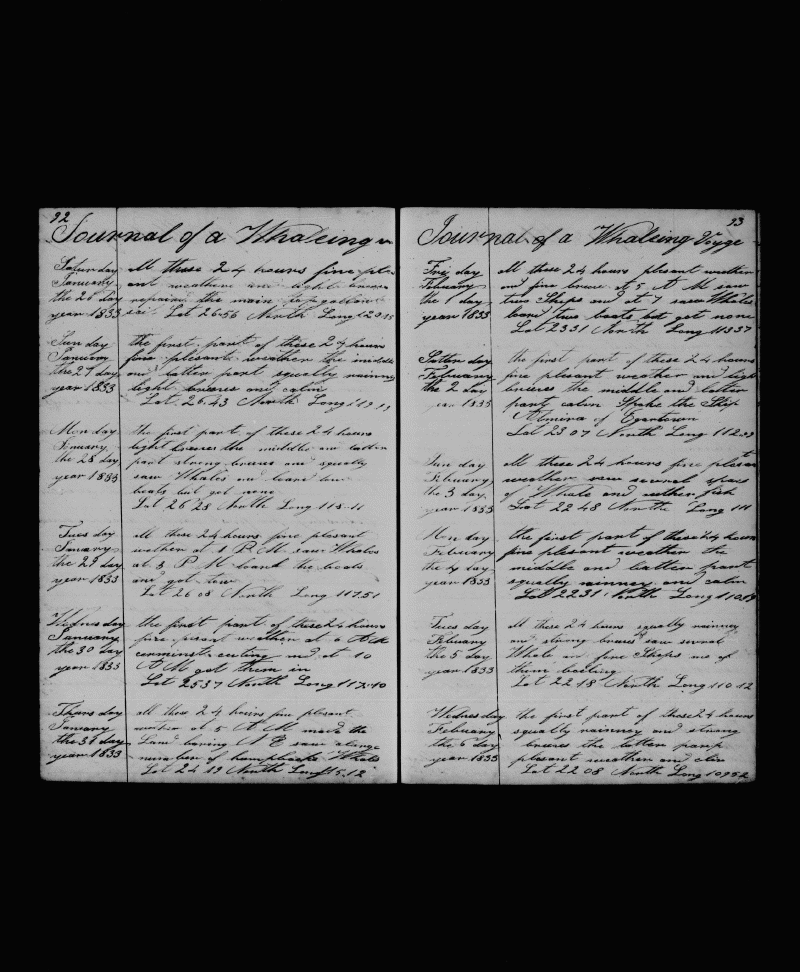 92
Journal of a Whaleing
Saturday
January
the 26 day
year 1833
all these 24 hours fine
and weather and light breeses
repairing the main top gallant
sai Lat 26-56 North Long 120
Sun day
January
the 27 day
year 1833
the first part of these 24 hours
fine plesant weather the middle
and latter part squally rainney
light breeses and calm
Lat 26.43 North Long 119 19
Mon day
January
the 28 day
year 1833
the first part of these 24 hours
light breeses the middle and latter
part strong breeses and squally
saw Whales and loard tow
boats but got none
Lat 26 28 North Long 118-11
Tues day
January
the 29 day
year 1833
all these 24 hours fine plesant
wether at 1 P M saw Whales
at 3 P M loard the boats
and got tow
Lat 26 08 North Long 117.51
Wednes day
January
the 30 day
year 1833
the first part of these 24 hours
fine plesant weather at 6 A M
cominst cuting and at 10
A M got them in
Lat 25 37 North Long 117.40
Thurs day
January
the 31 day
year 1833
all these 24 hours fine plesant
wether at 5 A M made the
Land baring N E saw a large
number of humpbacks Whales
Lat 24 19 North Long 115.12
93
Journal of a Whaleing Voyge
Fri day
February
the 1 day
year 1833
all these 24 hours plesant wether
and fine breese at 5 A M saw
two Sheps and at 7 saw Whales
loard two boats but got none
Lat 23 31 North Long 113 37
Satter day
February
the 2 day
year 1833
the first part of these 24 hours
fine plesant weather and ligh
breeses the middle and latter
part calm Spoke the Ship
Almira of Egertown
Lat 23 07 North Long 112
Sun day
February
the 3 day
year 1833
all these 24 hours fine plesant
weather saw several
of Whale and
Lat 22 48 North Long 111
Mon day
February
the 4 day
year 1833
the first part of these 24 hours
fine plesant weather the
middle and latter part
squally rainney and calm
Lat 22 31 North Long 110.19
Tues day
February
the 5 day
year 1833
all these 24 hours squally rainney
and strong breeses saw several
Whale and five Sheps one of
them boeling
Lat 22 18 North Long 110 12
Wednes day
February
the 6 day
year 1833
the first part of these 24 hours
squally rainney and strong
breeses the latter part
plesant weather and
Lat 22 08 North Long 109 52